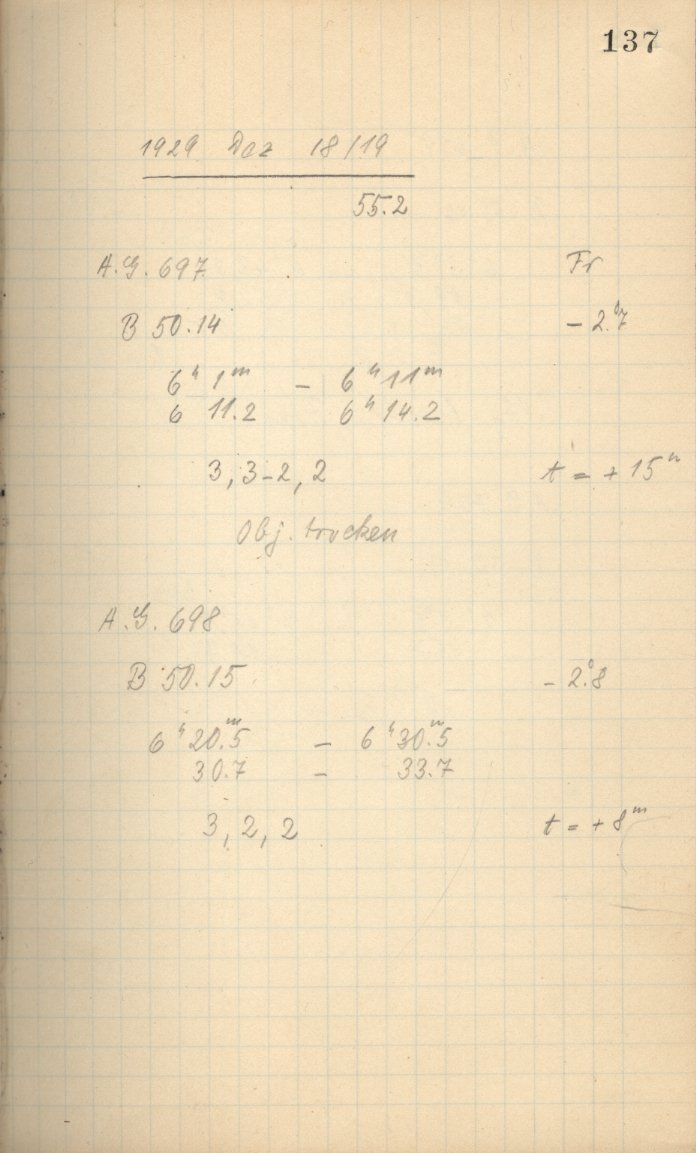 137
1929 Dez 18/19
55.2
A.G. 697 Fr
B 50.14 - 2.°7
6ʰ 1ᵐ - 6ʰ 11ᵐ
6 11.2 6ʰ 14.2
3, 3-2, 2 t = + 15ᵐ
Obj. trocken
A.G. 698
B 50.15 - 2.°8
6ʰ 20.ᵐ5 - 6ʰ 30.ᵐ5
30.7 - 33.7
3, 2, 2 t = + 8ᵐ